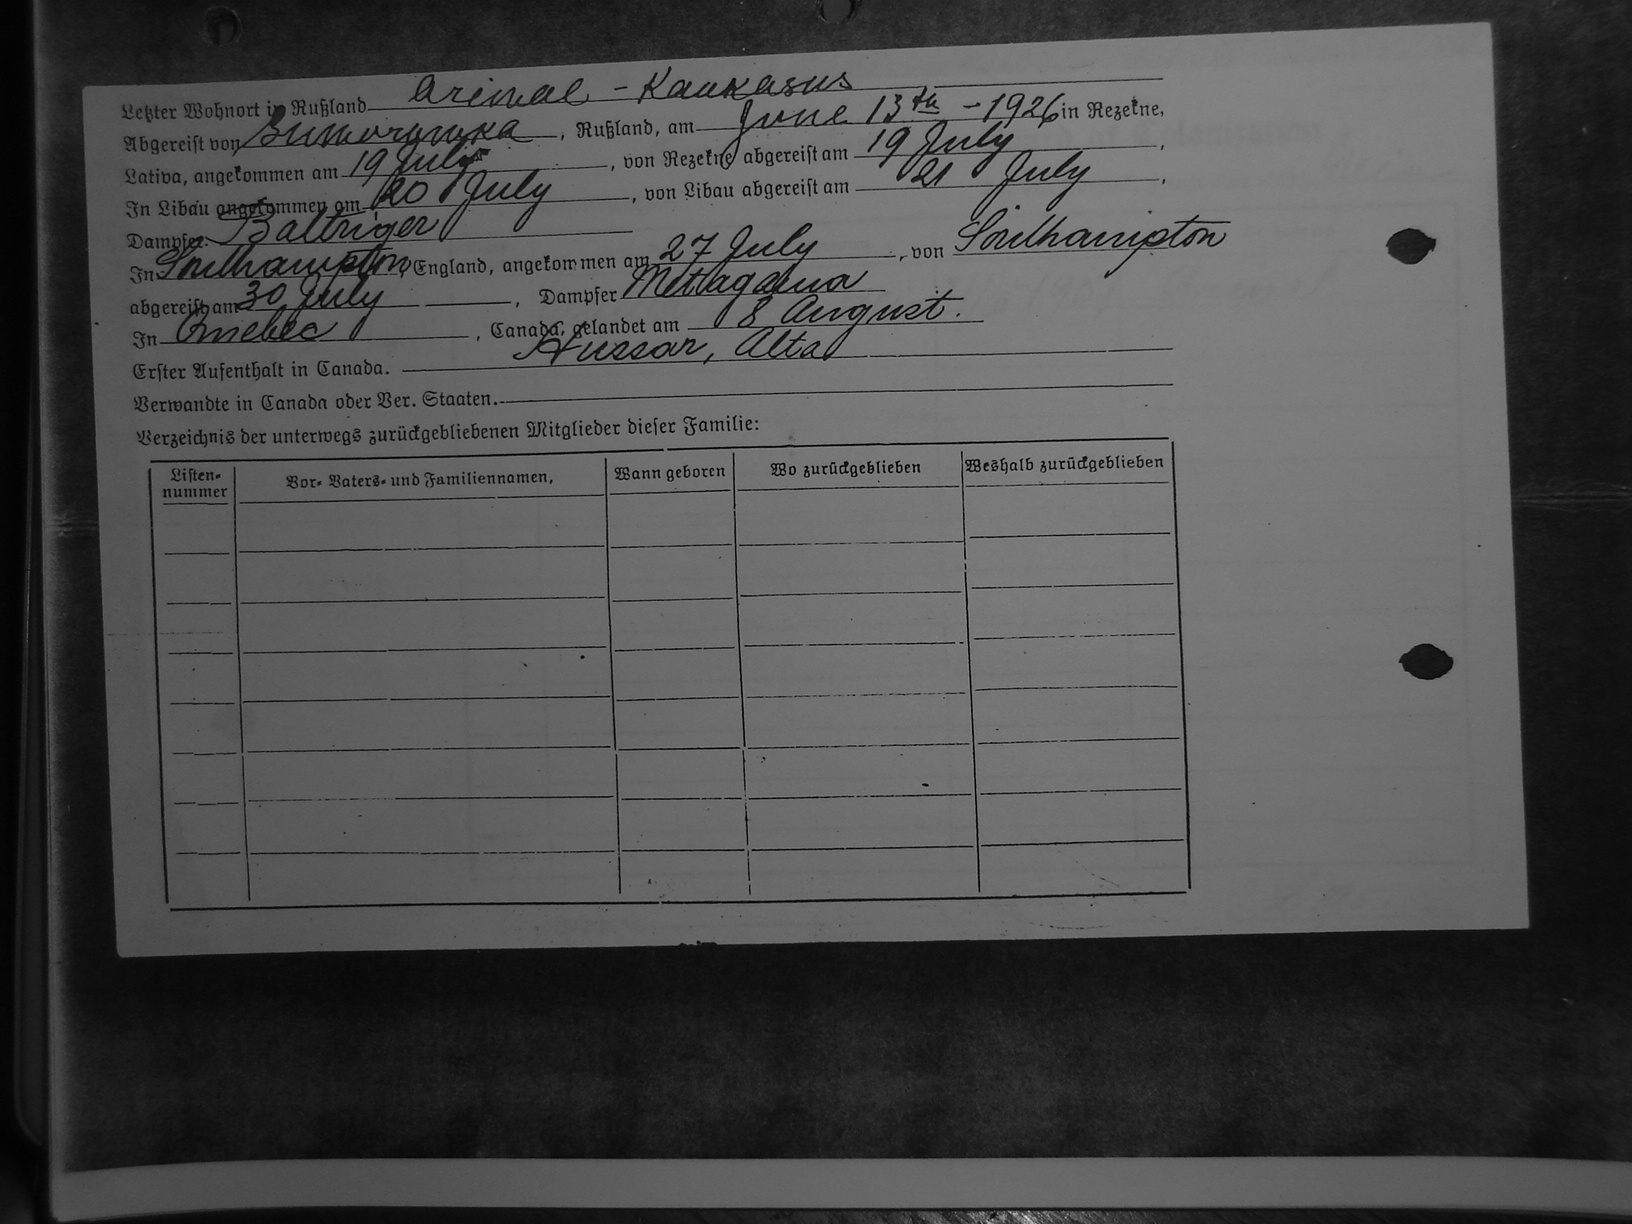 Letzter Wohnort in Rußland Arival - Kaukasus
Abgereist von , Rußland, am June 13th - 1926 in Rezekne,
Lativa, angekommen am 19 July , von Rezekne abgereist am 19 July ,
In Libau angekommen am 20 July , von Libau abgereist am 21 July ,
Dampfer: Baltriger
In Southampton, England, angekommen am 27 July , von Southampton
abgereist am 30 July , Dampfer Mettagama
In Quebec , Canada, gelandet am 8 August.
Erster Aufenthalt in Canada. Hussar, Alta
Verwandte in Canada oder Ver. Staaten.
Verzeichnis der unterwegs zurückgebliebenen Mitglieder dieser Familie:
Listen-nummer Vor- Vaters- und Familiennamen, Wann geboren Wo zurückgeblieben Weshalb zurückgeblieben